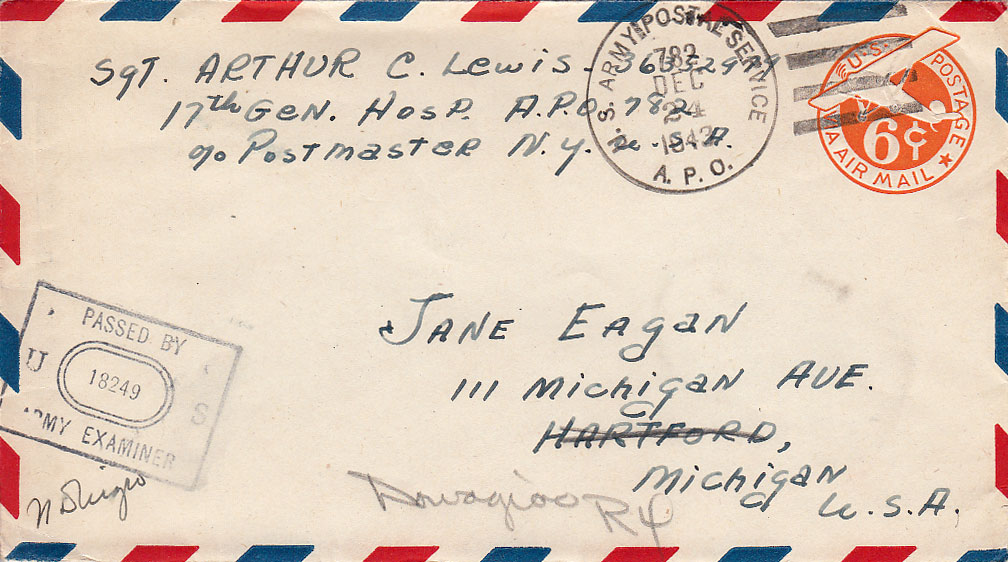 Sgt. ARTHUR C. Lewis
17th Gen. Hosp. A.P.O. 782
c/o Postmaster N.Y. U.S.A.
U.S. ARMY POSTAL SERVICE
782
DEC
24
1943
A.P.O.
U.S. POSTAGE
6¢
VIA AIR MAIL
JANE EAgAN
111 MichigAN AVE.
HARTFORD,
MichigAN
U.S.A.
Dowagiac R4
PASSED BY
U 18249 S
ARMY EXAMINER